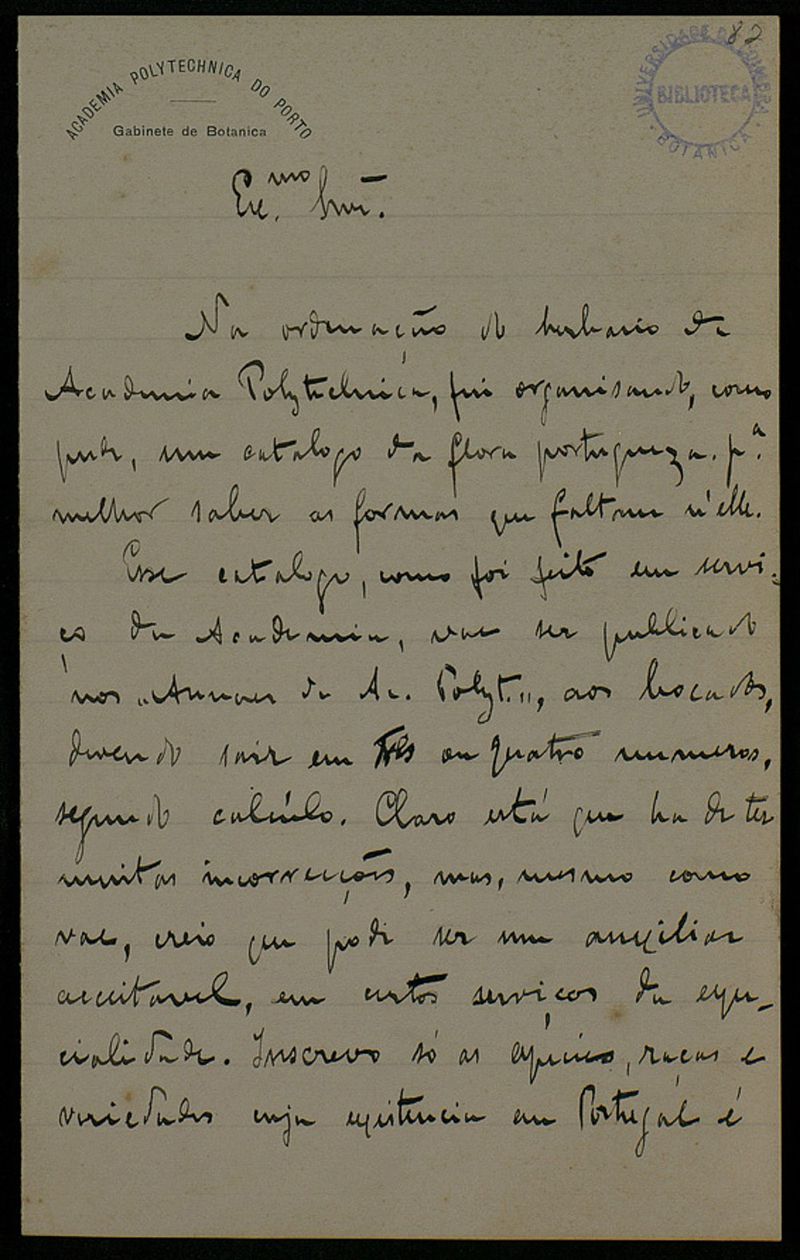 82
ACADEMIA POLYTECHNICA DO PORTO
Gabinete de Botanica
UNIVERSIDADE DE COIMBRA
BIBLIOTECA
BOTANICA
Exc.mo Snr.
Na ordenação do herbario da
Academia Polytechnica, fui organisando, como
pude, um catalogo da flora portugueza. p.a
melhor saber as formas que faltam n'elle.
Esse catalogo, como foi feito em servi-
ço da Academia, vae ser publicado
nos "Annaes da Ac. Polyt.", aos bocados,
devendo sair em tres ou quatro numeros,
segundo calculo. Claro está que ha de ter
muitas incorrecções, mas, mesmo como
vae, creio que pode ser um auxiliar
acceitavel, em certos serviços da espe-
cialidade. Inscrevo só as especies, raças e
variedades cuja existencia em Portugal é